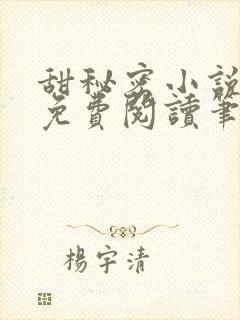 甜秘密小說
免費閱讀筆
楊宇清